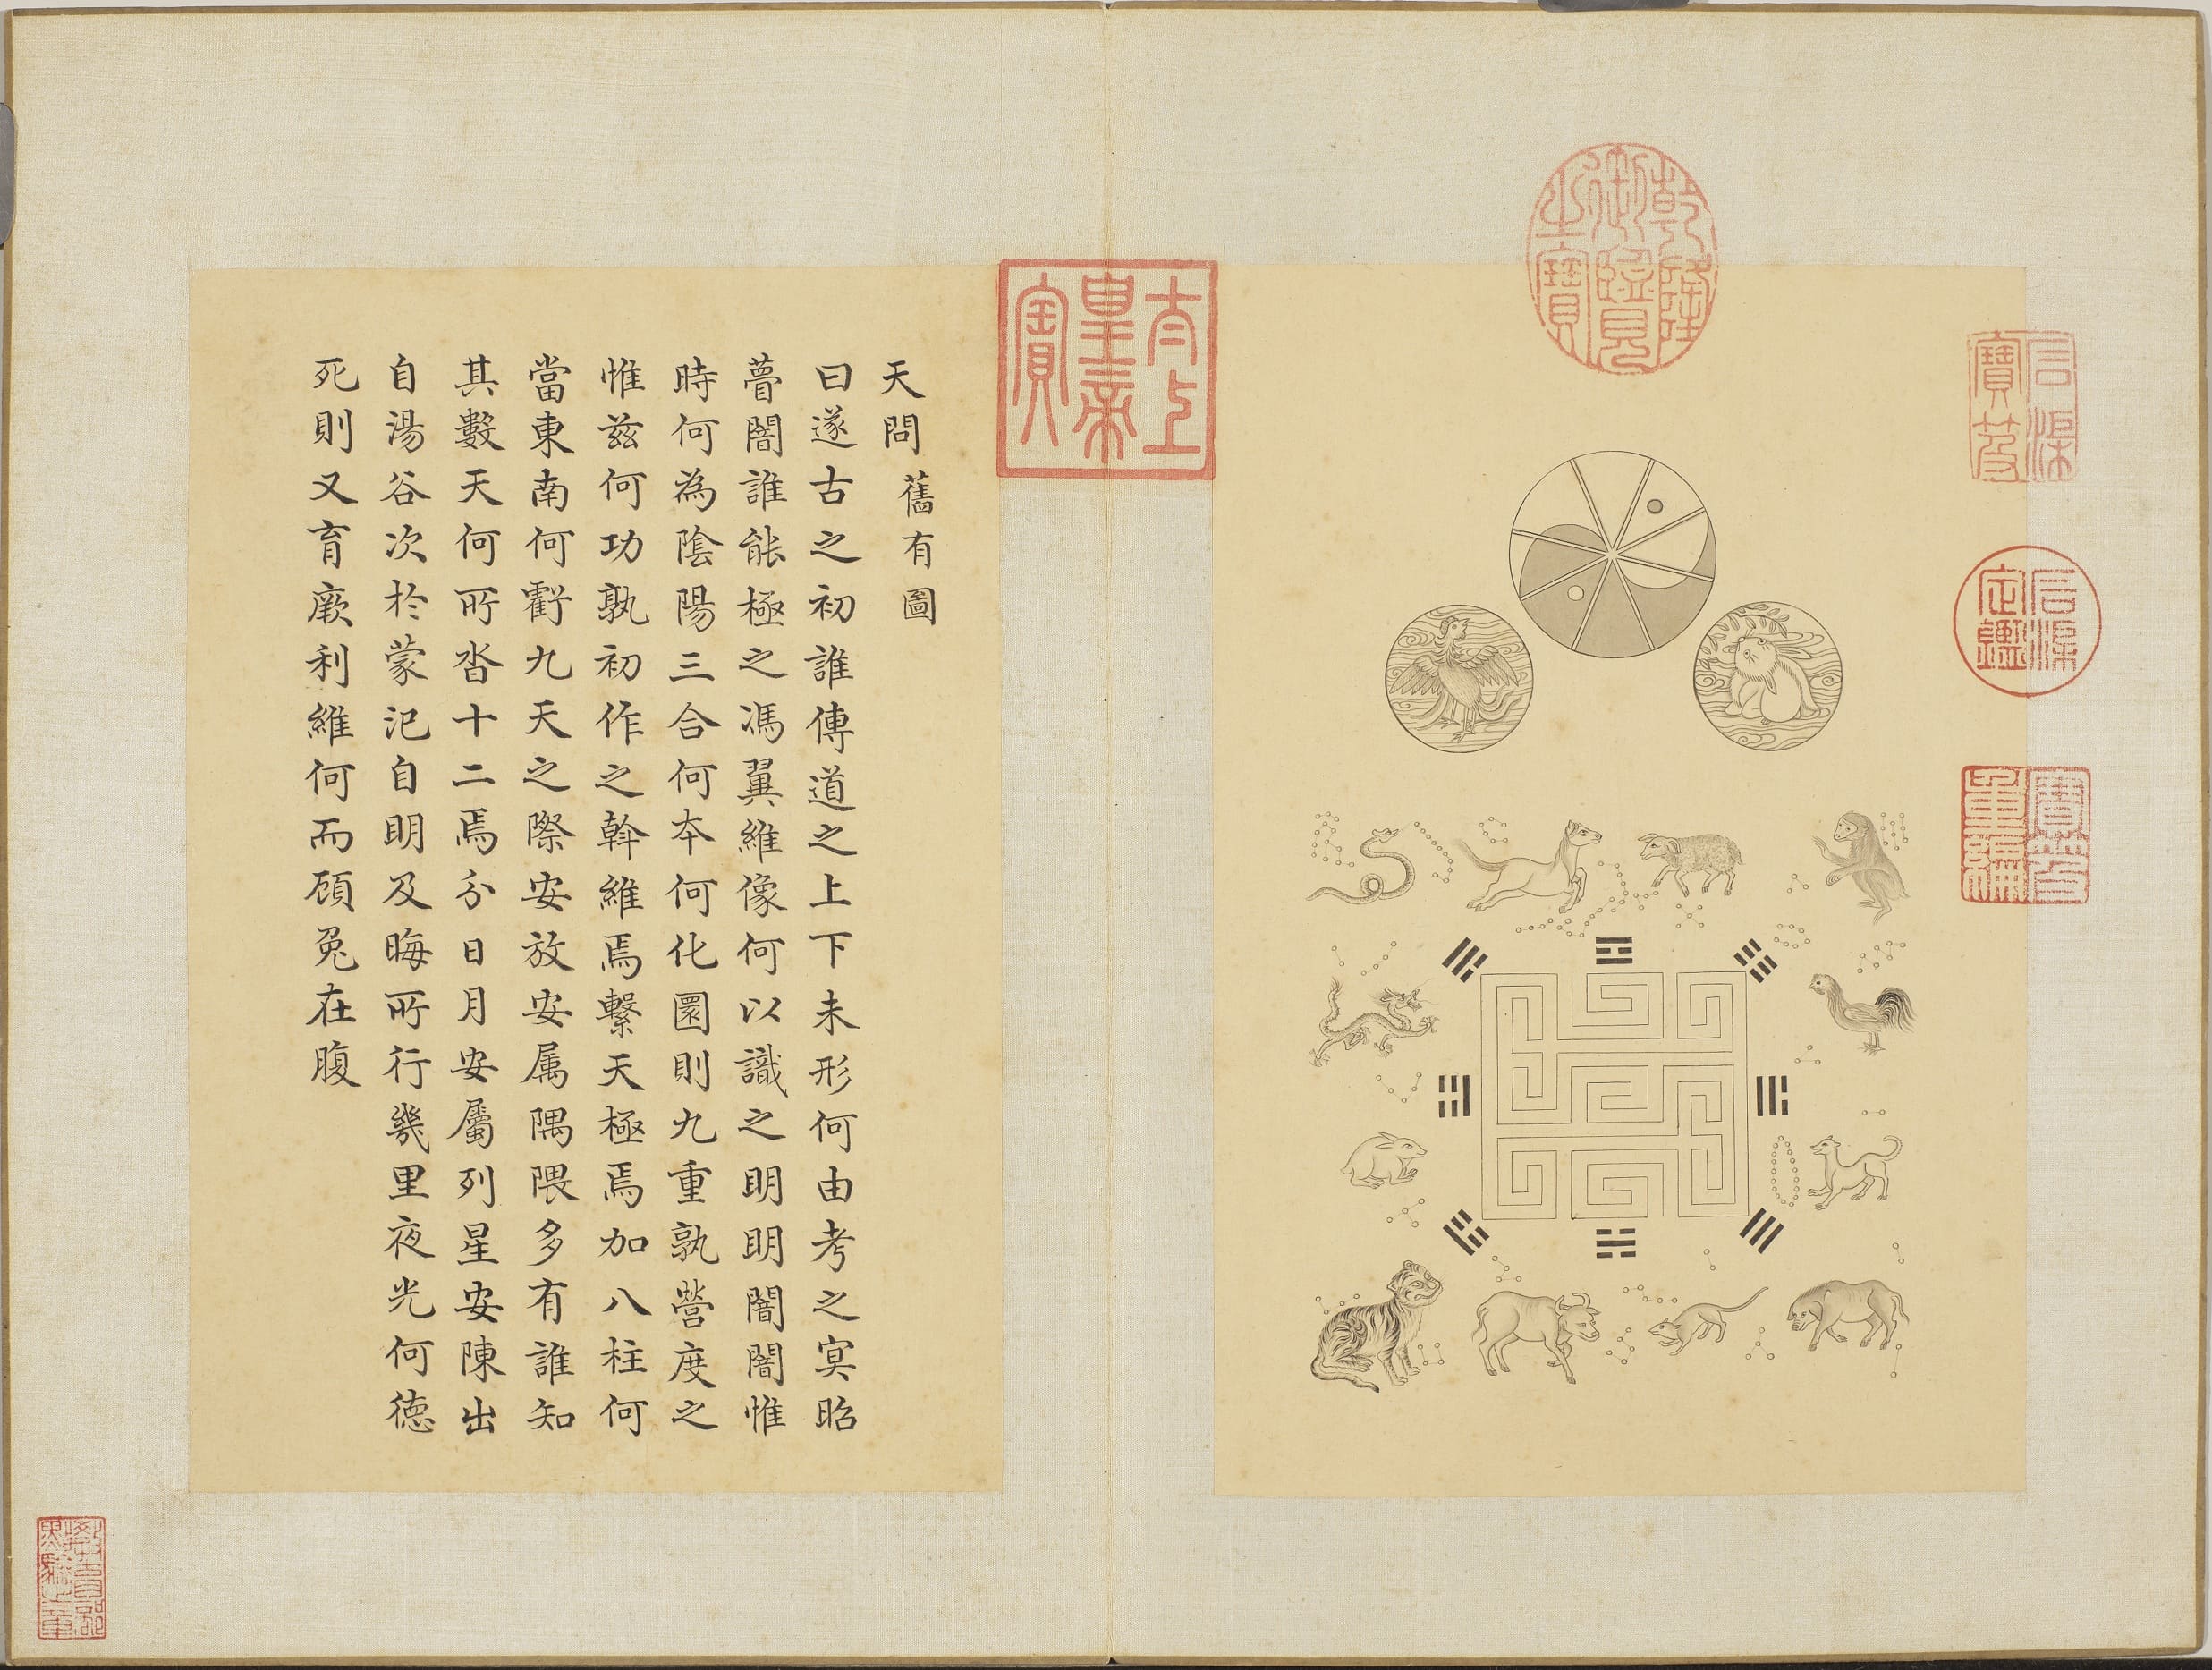 乾隆御覽之寶
石渠寶笈
石渠定鑑
寶笈重編
太上皇帝之寶
天問 舊有圖
曰遂古之初誰傳道之上下未形何由考之冥昭
瞢闇誰能極之馮翼維像何以識之明明闇闇惟
時何為陰陽三合何本何化圜則九重孰營度之
惟茲何功孰初作之斡維焉繫天極焉加八柱何
當東南何虧九天之際安放安属隅隈多有誰知
其數天何所沓十二焉分日月安屬列星安陳出
自湯谷次於蒙汜自明及晦所行幾里夜光何德
死則又育厥利維何而顧兔在腹